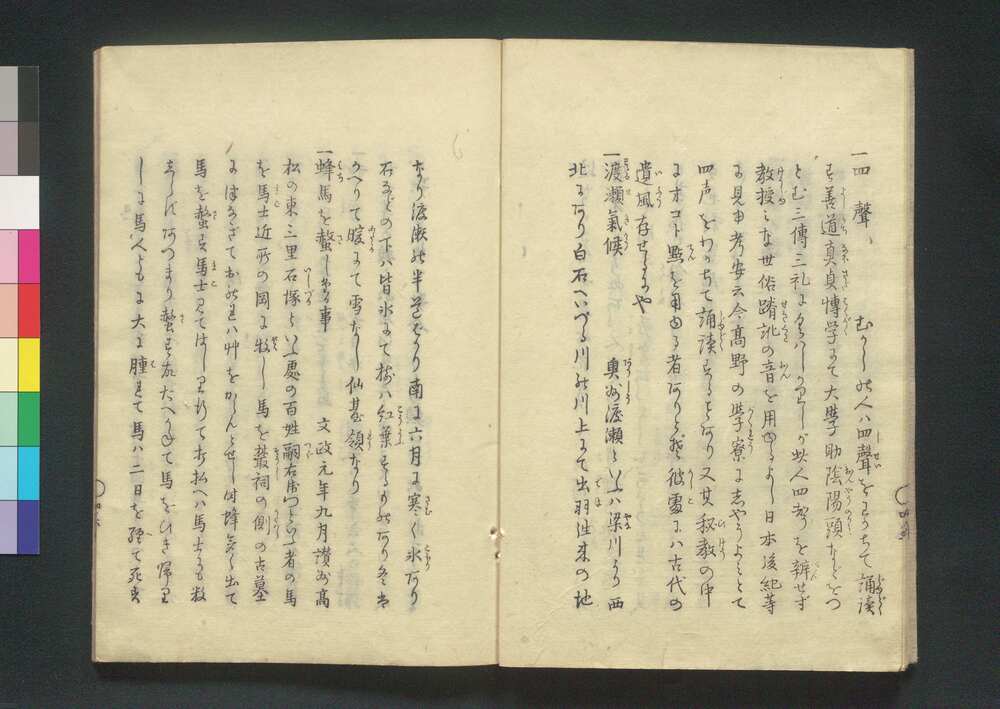 一四聲 むかしの人ハ四聲をわかちて誦読
す善道真貞博学にて大學助陰陽頭などをつ
とむ三傳三礼にくはしかりしが此人四声を辨せず
教授ミな世俗踳訛の音を用ゆるよし日本後紀等
に見ゆ考安云今高野の学寮に志やうよミとて
四声をわかちて誦読することあり又其秘教の中
にオコト點を用ゆる者ありとぞ彼處にハ古代の
遺風存せしにや
一渡瀬氣候 奥州渡瀬といふハ梁川より西
北にあり白石へいづる川の川上にて出羽往来の地
なり渡瀬の半道より南に六月に寒く氷あり
石などの下ハ皆氷にて樹ハ紅葉するものあり冬ハ
かへりて暖にて雪なし仙臺領なり
一蜂馬を螫しゝ事 文政元年九月讃州高
松の東三里石塚といふ處の百姓嗣右衛門といふ者の馬
を馬士近所の岡に牧し馬を叢祠の側の古墓
につなぎて おのれハ艸をからんとせし時蜂多く出て
馬を螫す馬士見てはしり行て打払へハ馬士にも数
しれずあつまり螫す 馬をひき帰り
しに馬人ともに大に腫れて馬ハ二日を経て死す